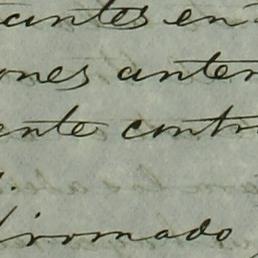 tantes en
ones anter
ente contr
firomado